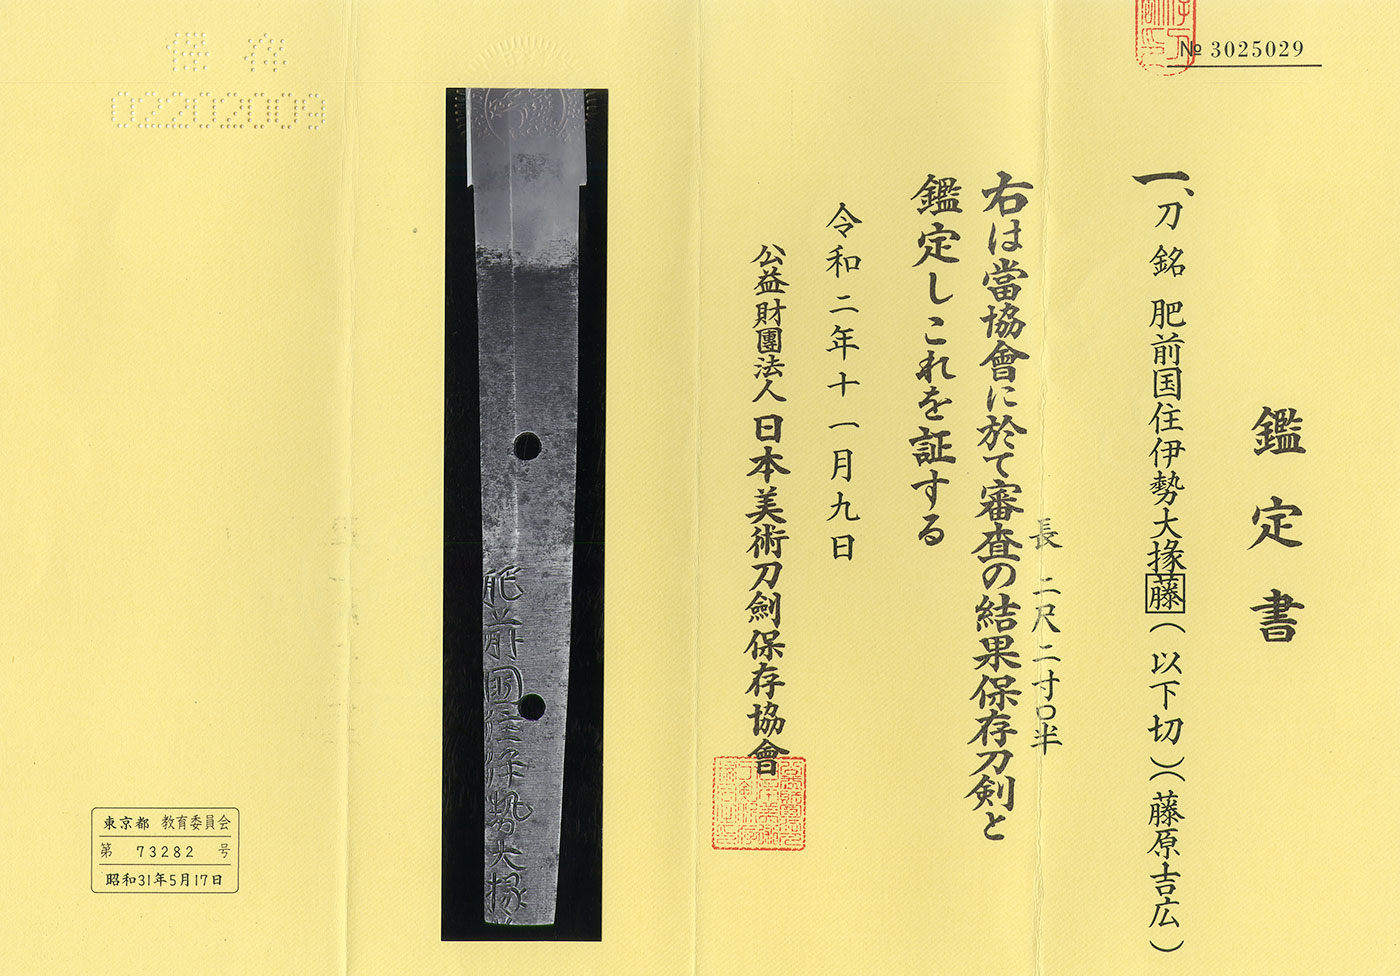 № 3025029
鑑定書
一、刀 銘 肥前国住伊勢大掾藤(以下切)(藤原吉広)
長 二尺二寸〇半
右は當協會に於て審査の結果保存刀剣と
鑑定しこれを証する
令和二年十一月九日
公益財團法人 日本美術刀劍保存協會
肥前國住伊勢大掾
保存
02202009
東京都 教育委員会
第 73282 号
昭和31年5月17日